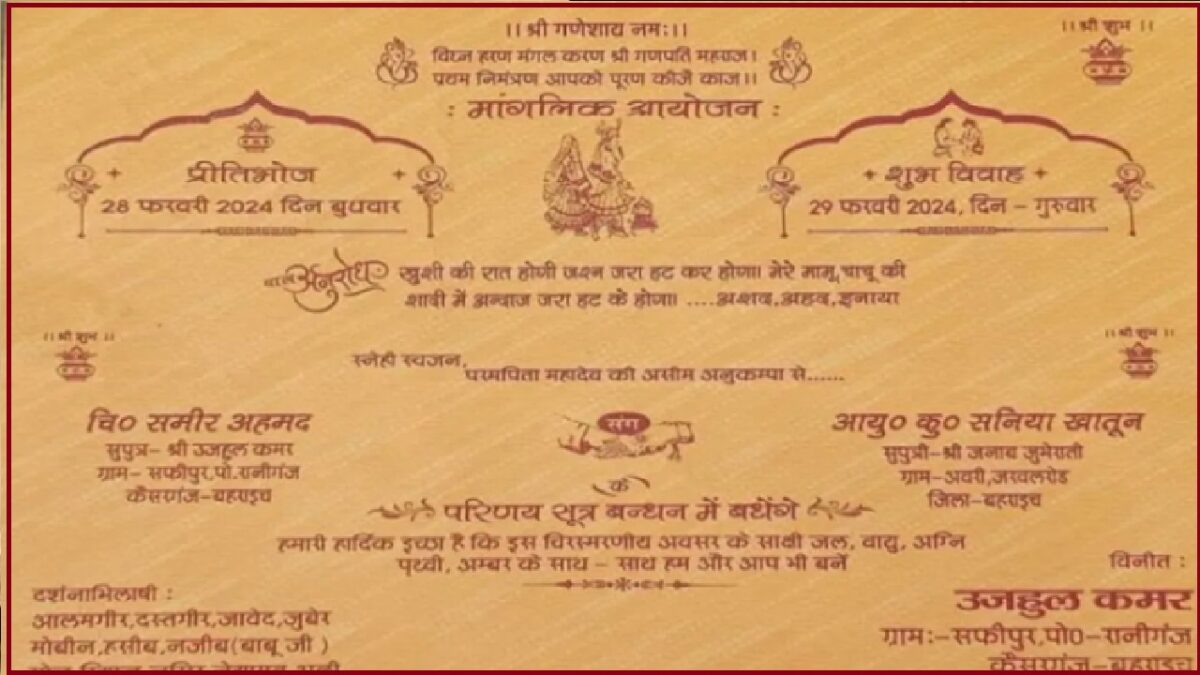 ।। श्री गणेशाय नमः।।
विघ्न हरण मंगल करण श्री गणपति महराज।
प्रथम निमंत्रण आपको पूरण कीजै काज।।
।। श्री शुभ ।।
: मांगलिक आयोजन :
प्रीतिभोज
28 फरवरी 2024 दिन बुधवार
शुभ विवाह
29 फरवरी 2024, दिन - गुरुवार
बाल अनुरोध
खुशी की रात होणी जश्न जरा हट कर होणा। मेरे मामू,चाचू की
शादी में अन्दाज जरा हट के होणा। ....अशद,अहद,इनाया
।। श्री शुभ ।।
।। श्री शुभ ।।
स्नेही स्वजन,
परमपिता महादेव की असीम अनुकम्पा से......
चि० समीर अहमद
सुपुत्र- श्री उजहुल कमर
ग्राम- सफीपुर,पो.रानीगंज
कैसरगंज-बहराइच
संग
आयु० कु० सनिया खातून
सुपुत्री-श्री जनाब जुमेराती
ग्राम-अवरी,जरवलरोड
जिला-बहराइच
के
परिणय सूत्र बन्धन में बधेंगे
हमारी हार्दिक इच्छा है कि इस चिरस्मरणीय अवसर के साक्षी जल, वायु, अग्नि
पृथ्वी, अम्बर के साथ - साथ हम और आप भी बनें
दर्शनाभिलाषी :
आलमगीर,दस्तगीर,जावेद,जुबेर
मोबीन,हसीब,नजीब(बाबू जी )
विनीत :
उजहुल कमर
ग्राम:-सफीपुर,पो०-रानीगंज
कैसरगंज-बहराइच